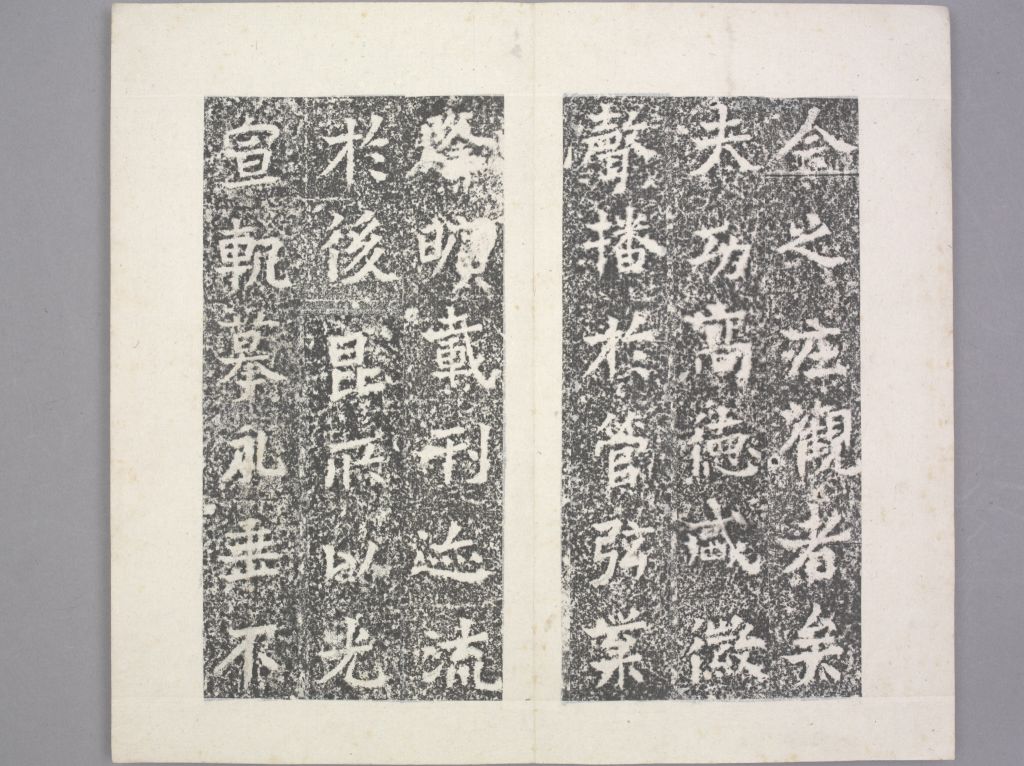 今之壯觀者矣
夫功高德盛徽
聲播於管弦業
載刊迹流
於後昆所以光
宣軌摹永垂不